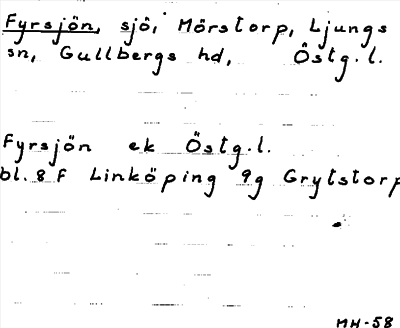 Fyrsjön, sjö, Mörstorp, Ljungs
sn, Gullbergs hd, Östg.l.
Fyrsjön ek Östg.l.
bl. 8 F Linköping 9g Grytstorp
MH-58